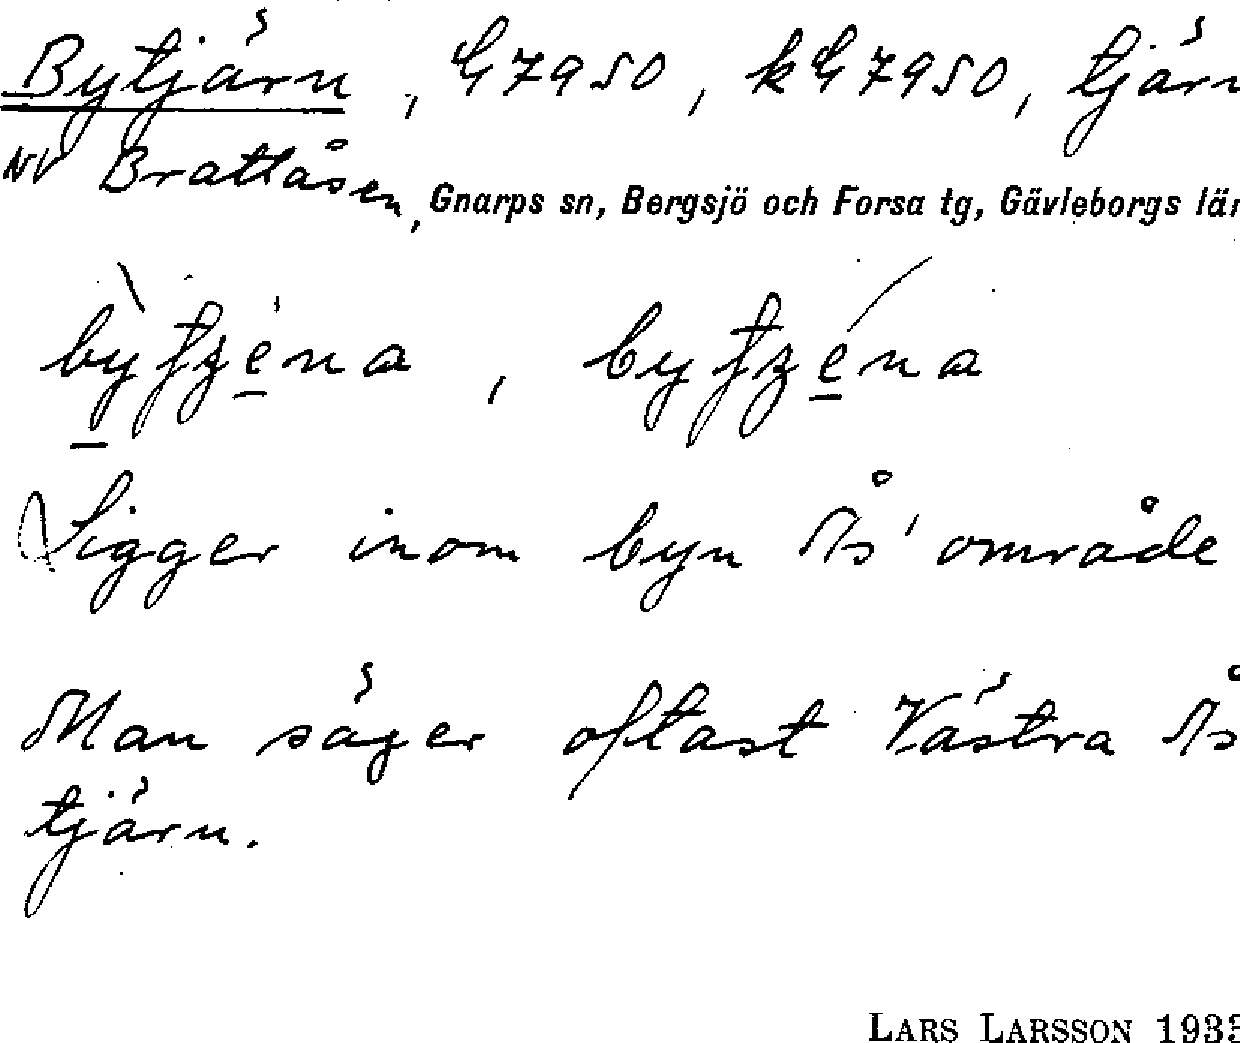 Bytjärn, G7950, kG7950, tjärn
NV Brattåsen, Gnarps sn, Bergsjö och Forsa tg, Gävleborgs län
Ligger inom byn Ås' område
Man säger oftast Västra Ås
tjärn.
LARS LARSSON 1935